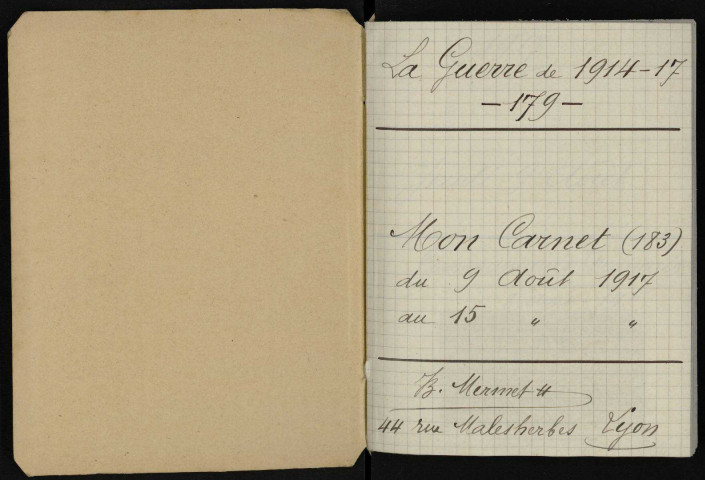 La Guerre de 1914-17
- 179 -
Mon Carnet (183)
du 9 Août 1917
au 15 " "
B. Mermet
44 rue Malesherbes Lyon